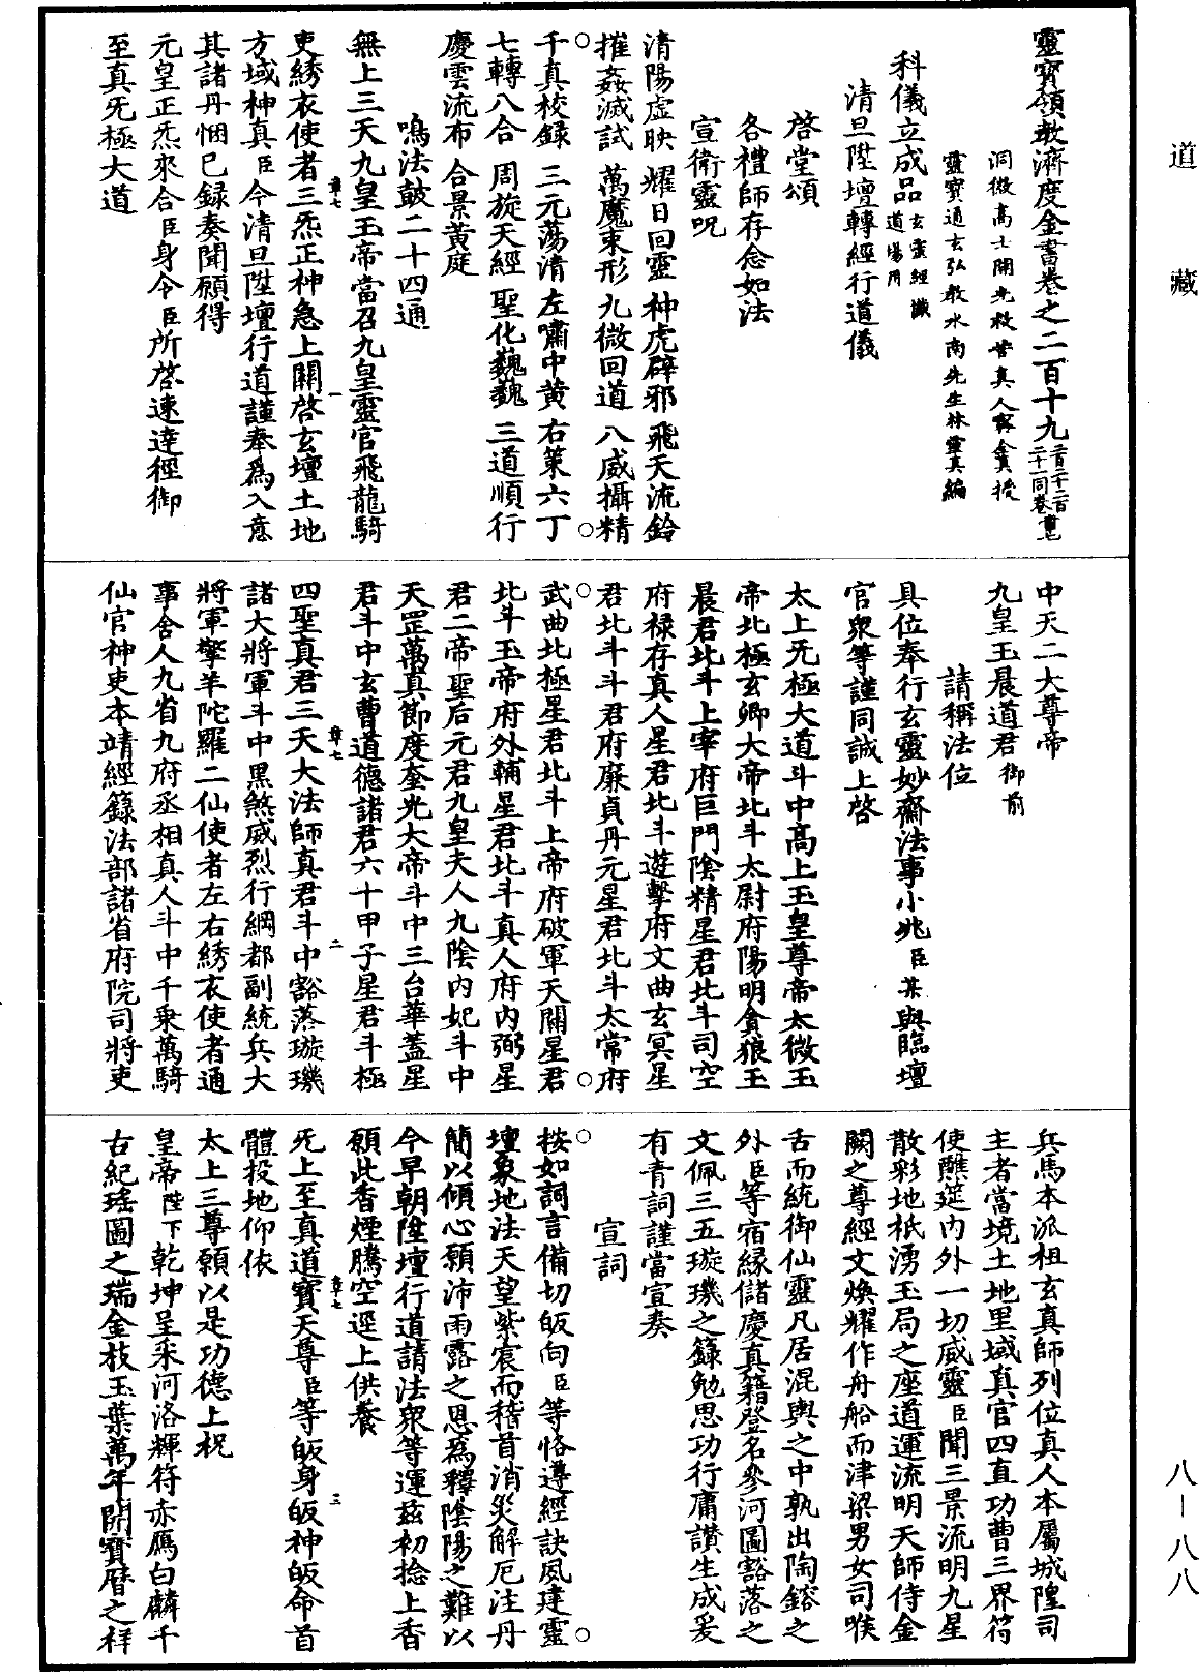 道藏
靈寶領教濟度金書卷之二百十九二百二十二百二十一同卷章七
洞微高士開光救苦真人甯全真授
靈寶通玄弘教水南先生林靈真編
科儀立成品玄靈經懺道場用
清旦陞壇轉經行道儀
啓堂頌
各禮師存念如法
宣衛靈呪
清陽虛映 耀日回靈 神虎辟邪 飛天流鈴
摧姦滅試 萬魔束形 九微回道 八威攝精
千真校録 三元蕩清 左嘯中黄 右策六丁
七轉八合 周旋天經 聖化巍巍 三道順行
慶雲流布 合景黄庭
鳴法鼓二十四通
無上三天九皇玉帝當召九皇靈官飛龍騎
吏綉衣使者三炁正神急上關啓玄壇土地
方域神真臣今清旦陞壇行道謹奉爲入意
其諸丹悃已録奏聞願得
元皇正炁來合臣身令臣所啓速達徑御
至真无極大道
中天二大尊帝
九皇玉晨道君御前
請稱法位
具位奉行玄靈妙齋法事小兆臣某與臨壇
官衆等謹同誠上啓
太上无極大道斗中高上玉皇尊帝太微玉
帝北極玄卿大帝北斗太尉府陽明貪狼玉
晨君北斗上宰府巨門陰精星君北斗司空
府禄存真人星君北斗遊擊府文曲玄冥星
君北斗斗君府廉貞丹元星君北斗太常府
武曲北極星君北斗上帝府破軍天關星君
北斗玉帝府外輔星君北斗真人府内弼星
君二帝聖后元君九皇夫人九陰内妃斗中
天罡萬真節度奎光大帝斗中三台華蓋星
君斗中玄曹道德諸君六十甲子星君斗極
四聖真君三天大法師真君斗中豁落璇璣
諸大將軍斗中黑煞威烈行綱都副統兵大
將軍擎羊陀羅二仙使者左右綉衣使者通
事舍人九省九府丞相真人斗中千乘萬騎
仙官神吏本靖經籙法部諸省府院司將吏
兵馬本派祖玄真師列位真人本屬城隍司
主者當境土地里域真官四直功曹三界符
使醮筵内外一切威靈臣聞三景流明九星
散彩地祇湧玉局之座道運流明天師侍金
闕之尊經文焕耀作舟船而津梁男女司喉
舌而統御仙靈凡居混輿之中孰出陶鎔之
外臣等宿緣儲慶真籍登名參河圖豁落之
文佩三五璇璣之籙勉思功行庸讃生成爰
有青詞謹當宣奏
宣詞
按如詞言備切皈向臣等恪遵經訣夙建靈
壇象地法天望紫宸而稽首消災解厄注丹
簡以傾心願沛雨露之恩爲釋陰陽之難以
今早朝陞壇行道請法衆等運兹初捻上香
願此香煙騰空逕上供養
无上至真道寶天尊臣等皈身皈神皈命首
體投地仰依
太上三尊願以是功德上祝
皇帝陛下乾坤呈采河洛輝符赤鴈白麟千
古紀瑶圖之瑞金枝玉葉萬年開寶曆之祥
章七 一
章七 二
章七 三
八-一八八